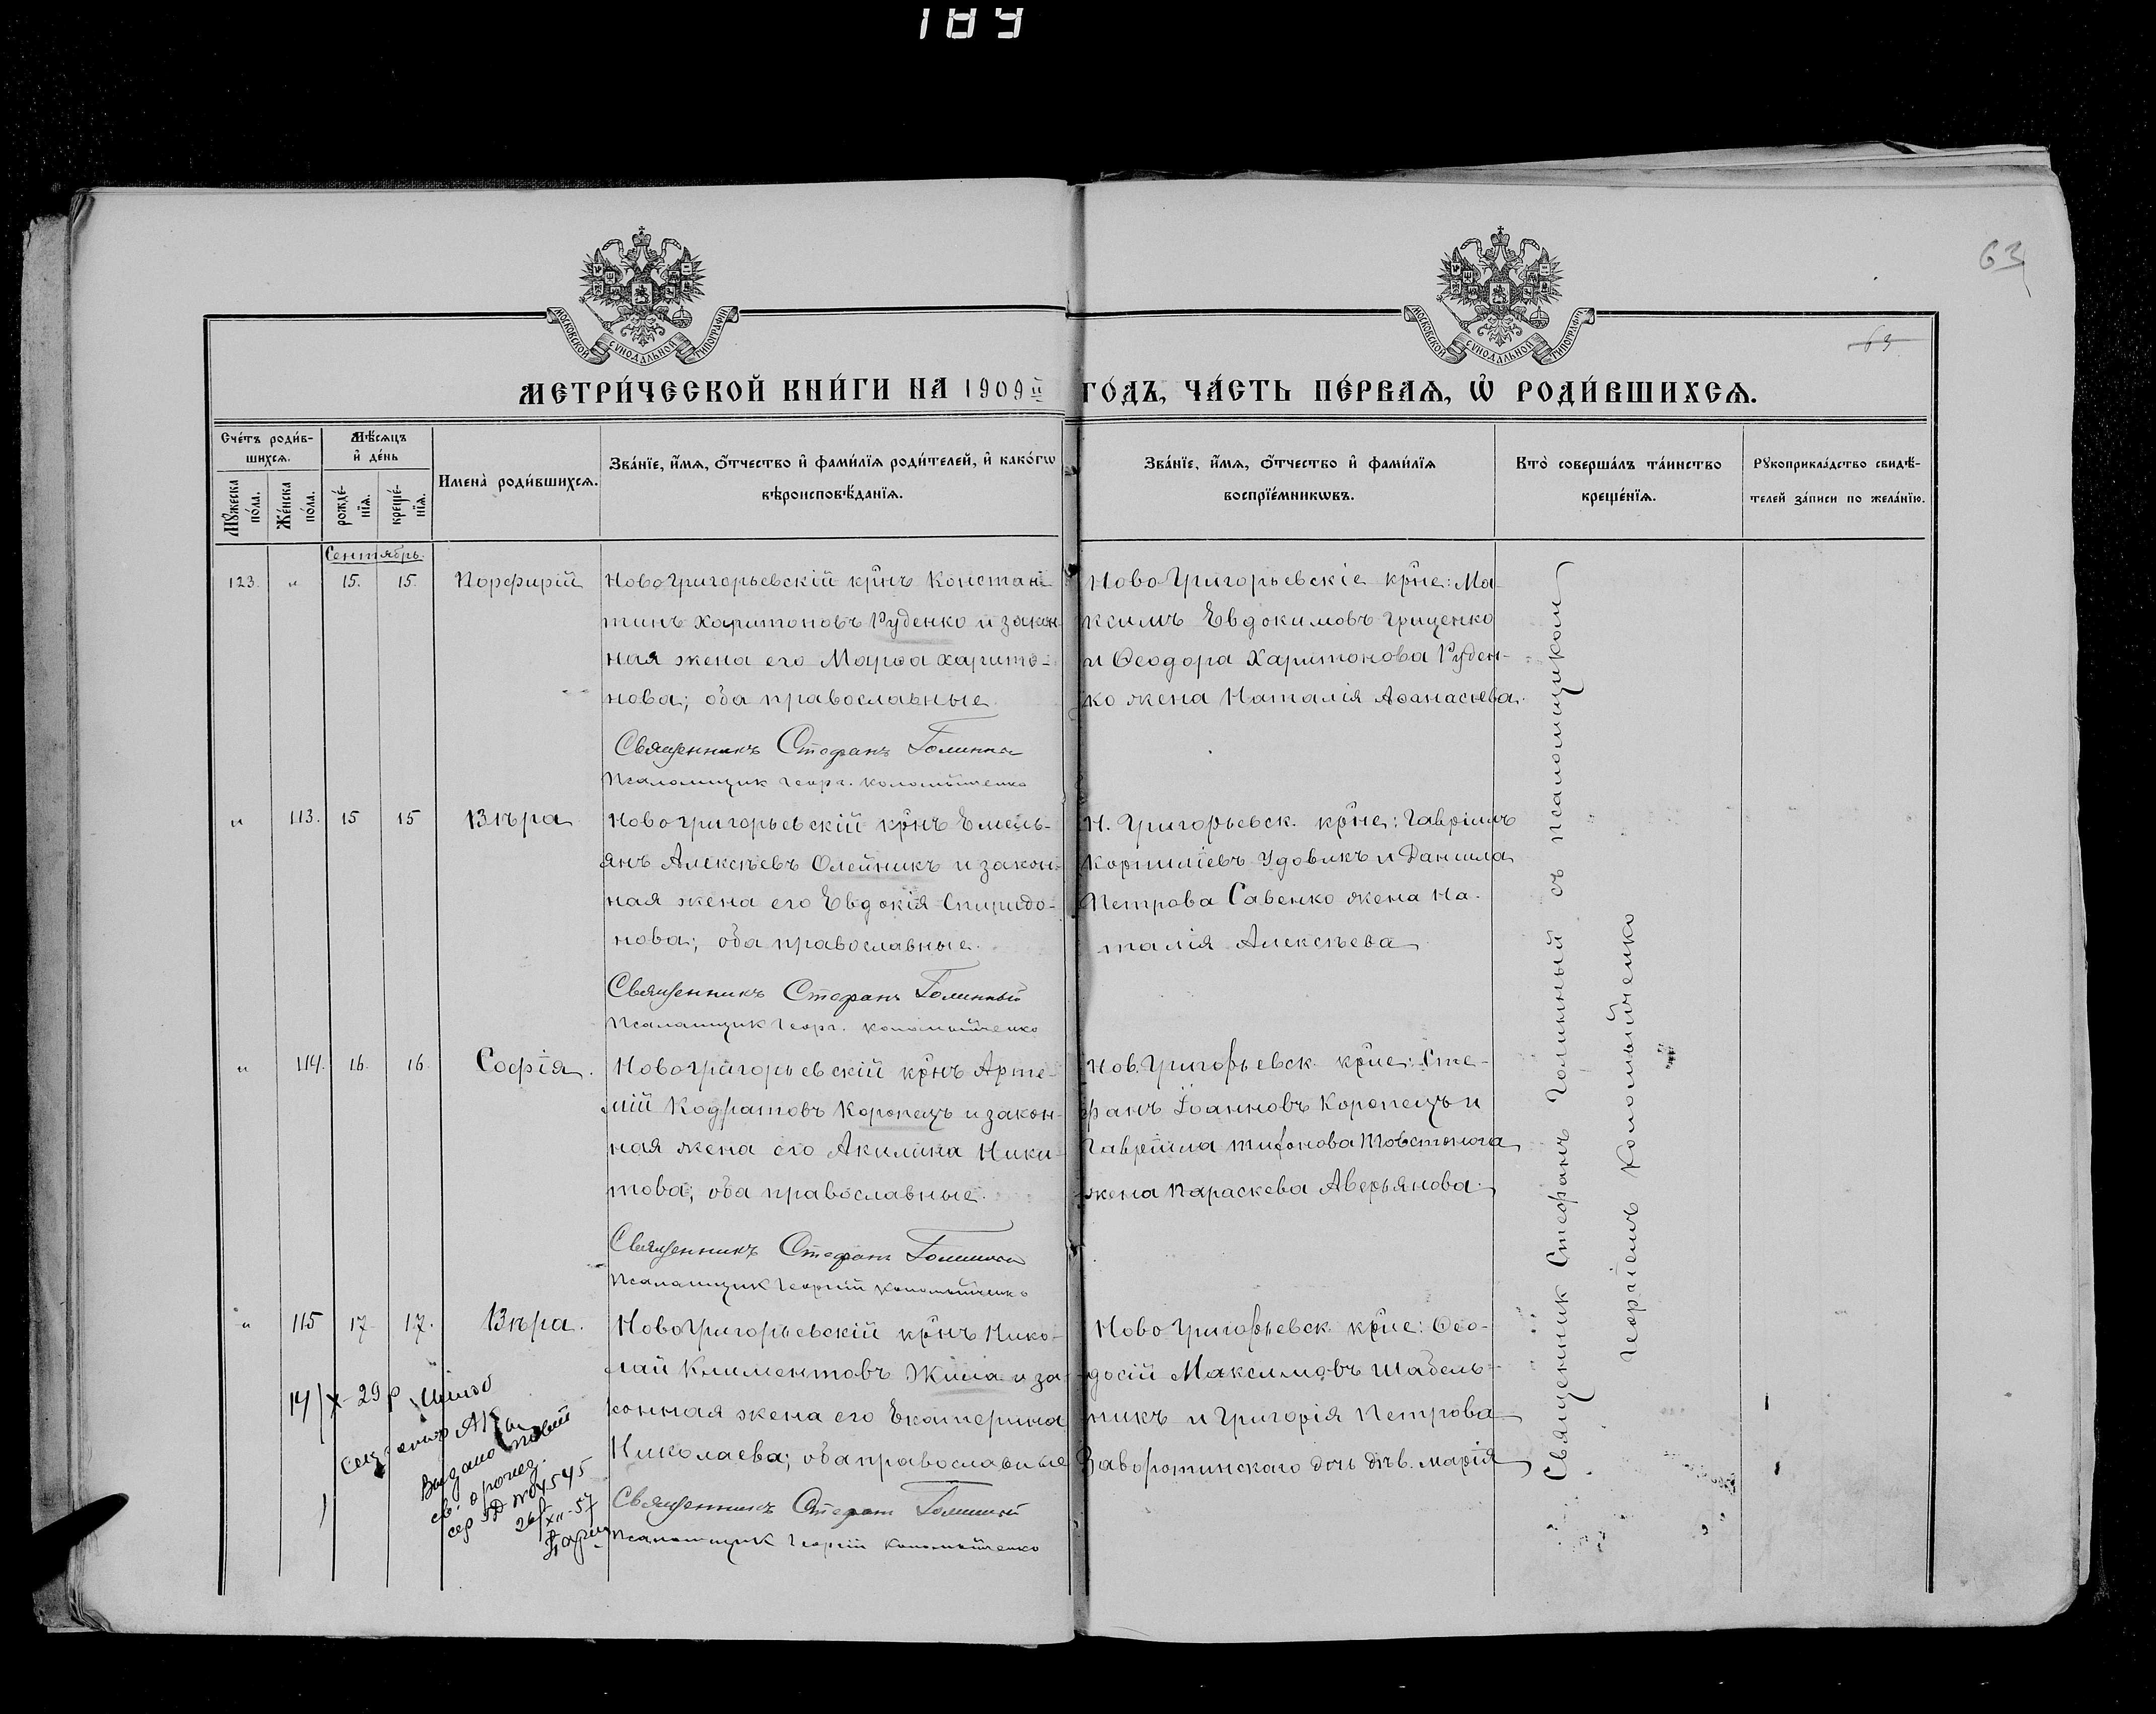 189
63
63
МОСКОВСКОЙ СѴНОДАЛЬНОЙ ТИПОГРАФІИ
МОСКОВСКОЙ СѴНОДАЛЬНОЙ ТИПОГРАФІИ
МЕТРИ́ЧЕСКОЙ КНИ́ГИ НА 1909й ГО́ДЪ, ЧА́СТЬ ПЕ́РВАѦ, Ѡ҆ РОДИ́ВШИХСѦ.
Сче́тъ роди́в-
шихсѧ.
Мѣ́сѧцъ
и҆ де́нь
Мꙋ́жеска по́ла.
Же́нска по́ла.
рожде́-
нїѧ.
креще́-
нїѧ.
Имена̀ роди́вшихсѧ.
Зва́нїе, и҆́мѧ, ѻ҆́тчество и҆ фами́лїѧ роди́телей, и҆ како́гѡ
вѣроисповѣ́данїѧ.
Зва́нїе, и҆́мѧ, ѻ҆́тчество и҆ фами́лїѧ
воспрїе́мникѡвъ.
Кто̀ соверша́лъ та́инство
креще́нїѧ.
Рꙋкоприкла́дство свидѣ́-
телей за́писи по жела́нїю.
Сентябрь.
123. „ 15. 15. Порфирій
НовоГригорьевскій крнъ Констан-
тинъ Харитоновъ Руденко и закон-
ная жена его Марѳа Харито-
нова; оба православные.
Священникъ Стефанъ Голинный
Псаломщик Георг. Коломыйченко
НовоГригорьевскіе крне: Ма-
ксимъ Евдокимовъ Гриценко
и Ѳеодора Харитонова Руден-
ко жена Наталія Аѳанасьева.
„ 113. 15 15 Вѣра
Новогригорьевскій крнъ Емель-
янъ Алексѣевъ Олейникъ и закон-
ная жена его Евдокія Спиридо-
нова; оба православные.
Священникъ Стефанъ Голинный
Псаломщик Георг. Коломыйченко
Н. Григорьевск. крне: Гавріилъ
Корниліевъ Удовикъ и Данила
Петрова Савенко жена На-
талія Алексѣева
„ 114. 16. 16. Софія.
Новогригорьевскій крнъ Арте-
мій Кодратовъ Коропецъ и закон-
ная жена его Акилина Ники-
това; оба православные.
Священникъ Стефанъ Голинный
Псаломщик Георгій Коломыйченко
Нов. Григорьевск. крне: Сте-
фанъ Іоанновъ Коропецъ и
Гавріила Тифонова Товстонога
жена Параскева Аверьянова.
„ 115 17. 17. Вѣра.
НовоГригорьевскій крнъ Нико-
лай Климентовъ Жила и за-
конная жена его Екатерина
Николаева; оба православные
Священникъ Стефанъ Голинный
Псаломщик Георгій Коломыйченко
НовоГригорьевск. крне: Ѳео-
досій Максимовъ Шабель-
никъ и Григорія Петрова
Заворотинскаго дочь дѣв. Марія
14/X-29р
Видано
св. о рожд.
сер № 04545
26/XII-57
Священник Стефанъ Голинный съ псаломщиком
Георгіемъ Коломыйченко